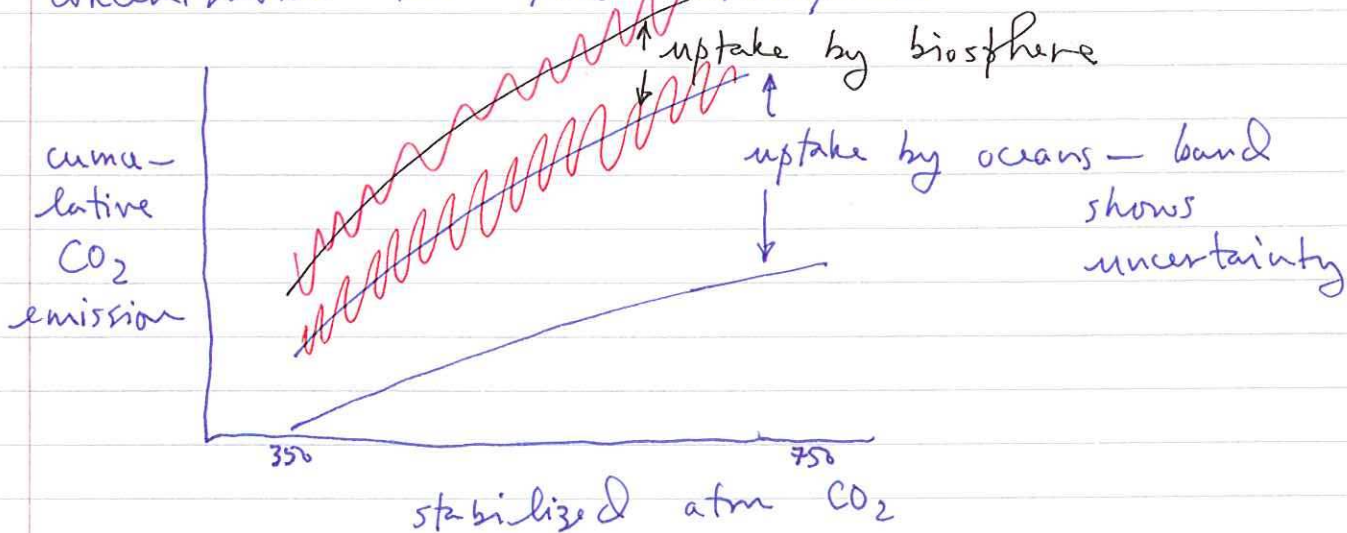 uptake by biosphere
uptake by oceans — band
shows
uncertainty
cumu-
lative
CO₂
emission
350 750
stabilized atm CO₂